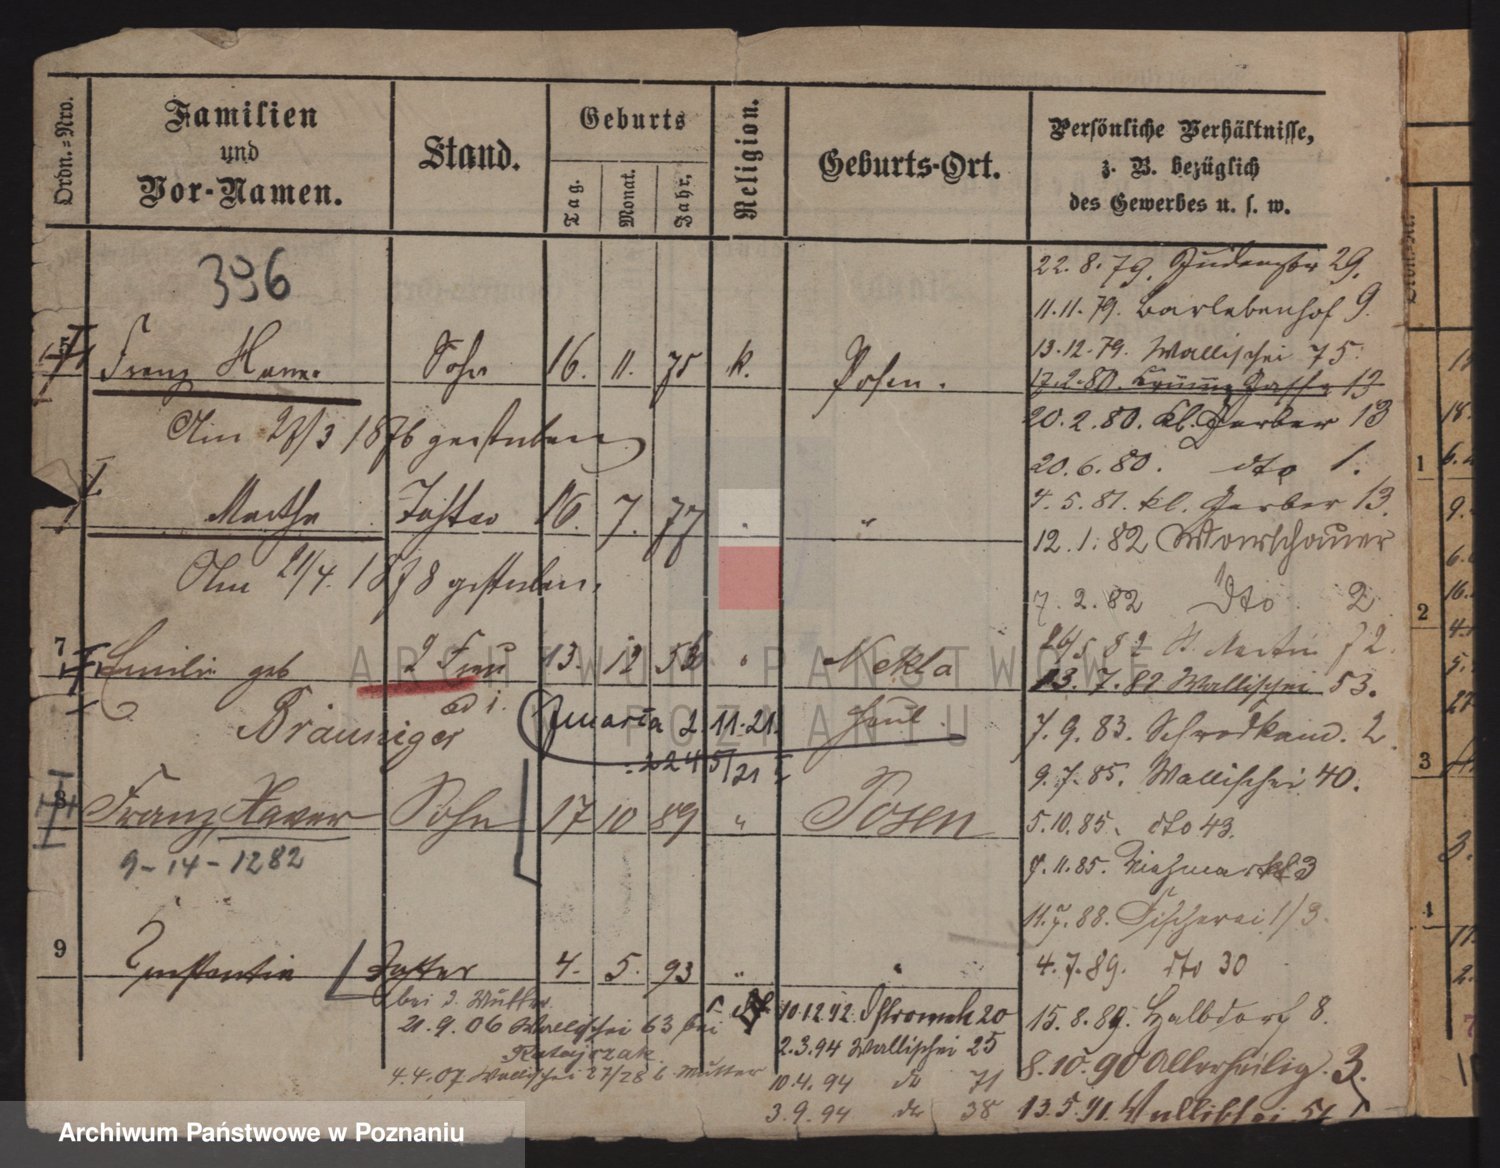 Ordn.=Nro.
Familien
und
Vor-Namen.
Stand.
Geburts
Tag.
Monat.
Jahr.
Religion.
Geburts-Ort.
Persönliche Verhältnisse,
z. B. bezüglich
des Gewerbes u. s. w.
396
22. 8. 79. Judenstr 29.
11. 11. 79. Barlebenhof 9.
13. 12. 79. Wallischei 75.
5 Franz Sohn 16. 11. 75 k. Posen.
17. 2. 80. 13
Am 28/3 1876 gestorben
20. 2. 80. Kl. Gerber 13
20. 6. 80. dto 1.
Martha Tochter 16. 7. 77 "
4. 5. 81. kl. Gerber 13.
12. 1. 82 Warschauer
Am 21/4. 1878 gestorben.
7. 2. 82 Dto 2
26/5 82 St. Martin 72.
7 Emilie geb 2 Frau 13. 12 Nekla
13. 7. 82 Wallischei 53.
ad 1.
Bräuniger
Maria 2. 11. 21.
7. 9. 83. Schrodkam. 2
9. 7. 85. Wallischei 40.
8 Franz Xaver Sohn 17 10 89 " Posen
5. 10. 85. dto 43.
9-14-1282
7. 11. 85. Viehmarkt 3
11. 7. 88. Fischerei 1/3.
9 Constantia Tochter 4. 5. 93 "
4. 7. 89. dto 30
bei d. Mutter
21. 9. 06 Wallischei 63 bei
Ratajczak
4. 4. 07 Wallischei 27/28 b. Mutter
10. 12. 92. Ostrowek 20
2. 3. 94 Wallischei 25
10. 4. 94 do 71
3. 9. 94 do 38
15. 8. 89. Halbdorf 8.
8. 10. 90 Allerheilig. 3.
13. 5. 91. Wallischei
1
2
3
ARCHIWUM PAŃSTWOWE
W POZNANIU
Archiwum Państwowe w Poznaniu